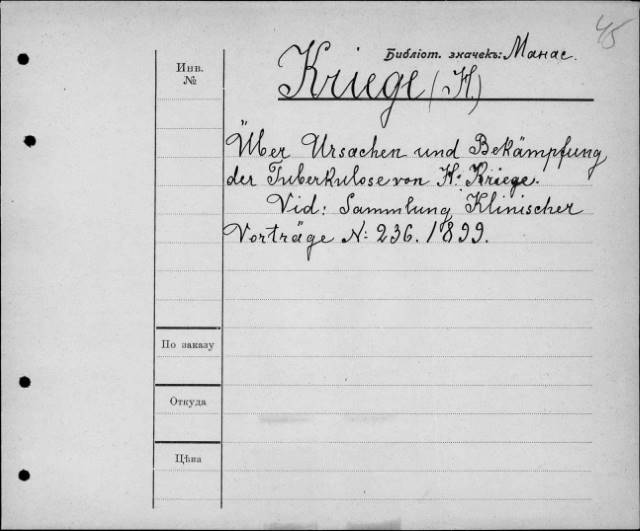 45
Бібліот. значекъ: Манас.
Инв.
№
Kriege (H.)
Über Ursachen und Bekämpfung
der Tuberkulose von H: Kriege.
Vid: Sammlung Klinischer
Vorträge N: 236. 1899.
По заказу
Откуда
Цѣна